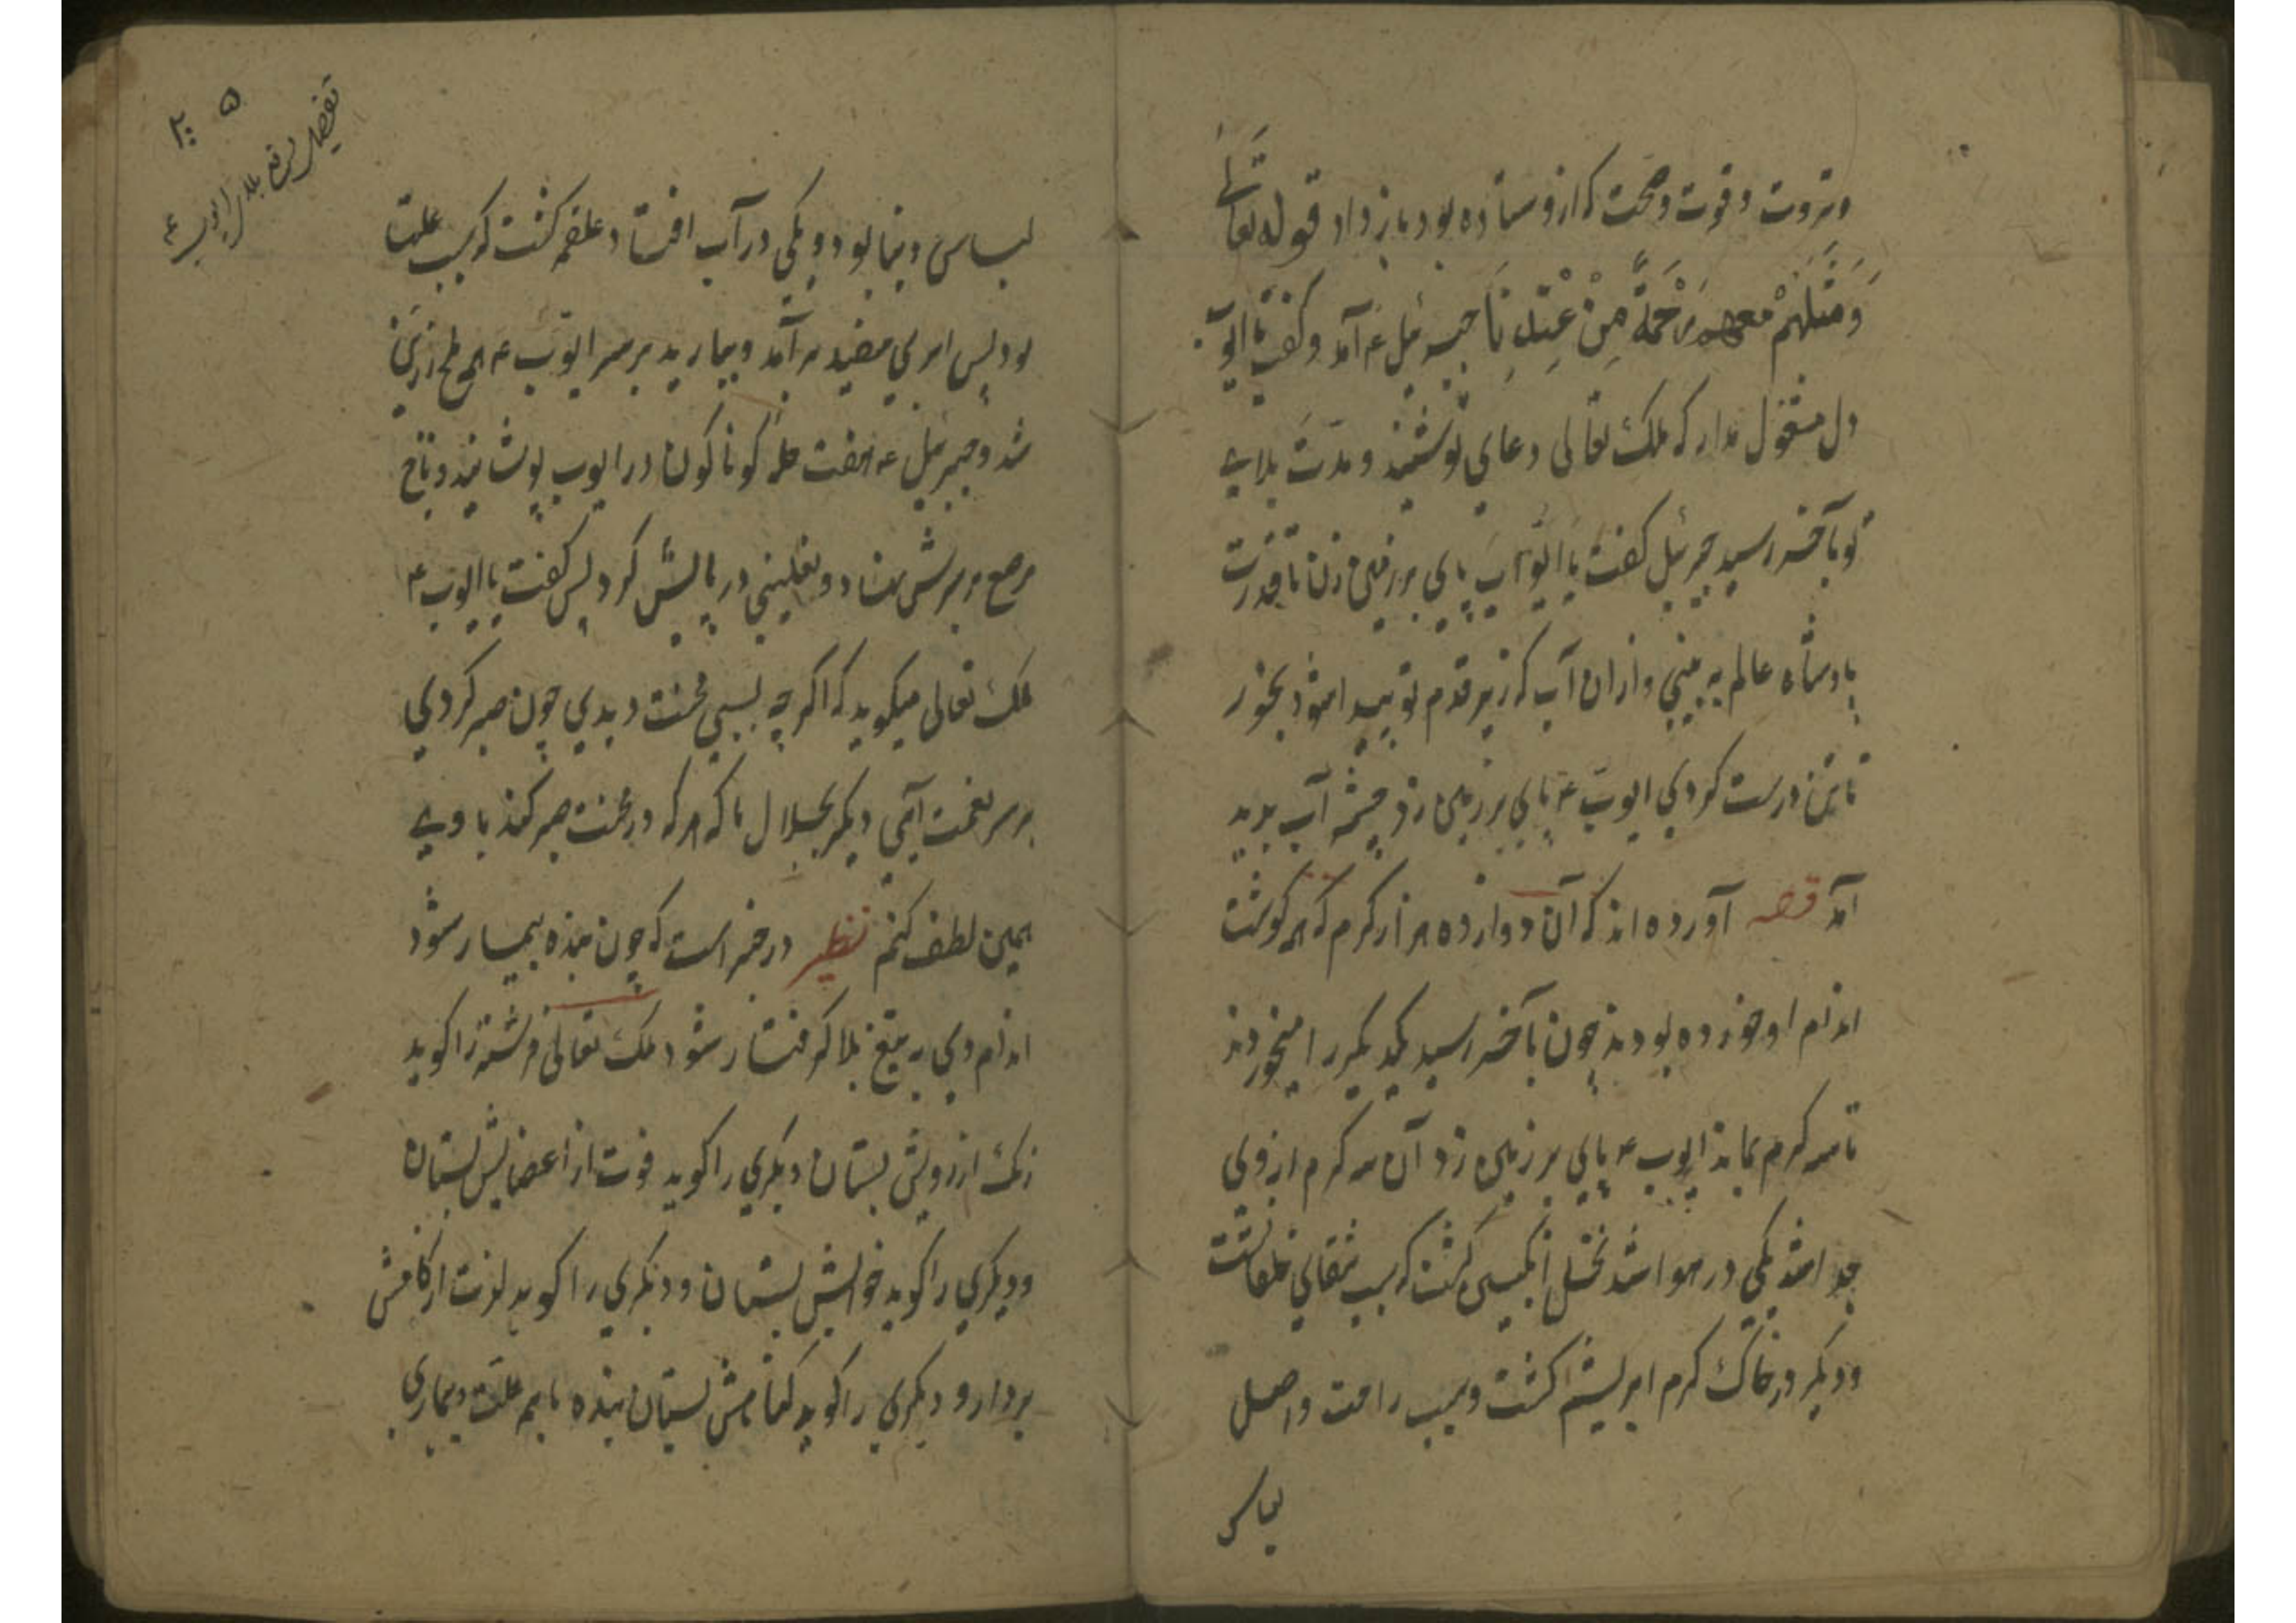 وثروت وقوت وصحت که ازو ستاده بود باز داد قوله تعالی
وَمِثْلَهُمْ مَعَهُمْ رَحْمَةً مِنْ عِنْدِنَا جبرئیل ء آمد و گفت یا ایوب
دل مشغول مدار که ملک تعالی دعای تو شنید و مدت بلای
تو بآخر رسید جبرئیل گفت یا ایوب پای بر زمین زن تا قدرت
پادشاه عالم به بینی و ازان آب که زیر قدم تو پیدا شود بخور
تا تن درست گردی ایوب ء پای بر زمین زد چشمه آب پدید
آمد قصه آورده اند که آن دوازده هزار کرم که گوشت
اندام او خورده بودند چون بآخر رسید یکدیگر را میخوردند
تا سه کرم بماند ایوب ء پای بر زمین زد آن سه کرم از وی
جدا شد یکی در هوا شد نخل انگبین گشت که سبب شفای خلقانست
ودیگر در خاک کرم ابریشم گشت و سبب راحت واصل
لباس
۲۰۵
تفصیل رفع بلا ایوب ء
لباس دنیا بود ویکی در آب افتاد علقه گشت که سبب علتها
بود پس ابری سفید بر آمد و ببارید بر سر ایوب ء ملخ زرین
شد وجبرئیل ء هفت حله گوناگون در ایوب پوشانید وتاج
مرصع بر سرش نهاد ونعلینی در پایش کرد پس گفت یا ایوب ء
ملک تعالی میگوید که اگر چه بسی محنت دیدی چون صبر کردی
بر سر نعمت آیی دیگر بجلال ما که هر که در محنت صبر کند با وی
همین لطف کنم نظیر در خبر است که چون بنده بیمار شود
اندام وی به تیغ بلا گرفتار شود ملک تعالی فرشته را گوید
رنگ از رویش بستان دیگری را گوید قوت از اعضایش بستان
ودیگری را گوید خوابش بستان ودیگری را گوید لذت از کامش
بردار و دیگری را گوید گناهش بستان بنده با همه علت وبیماری